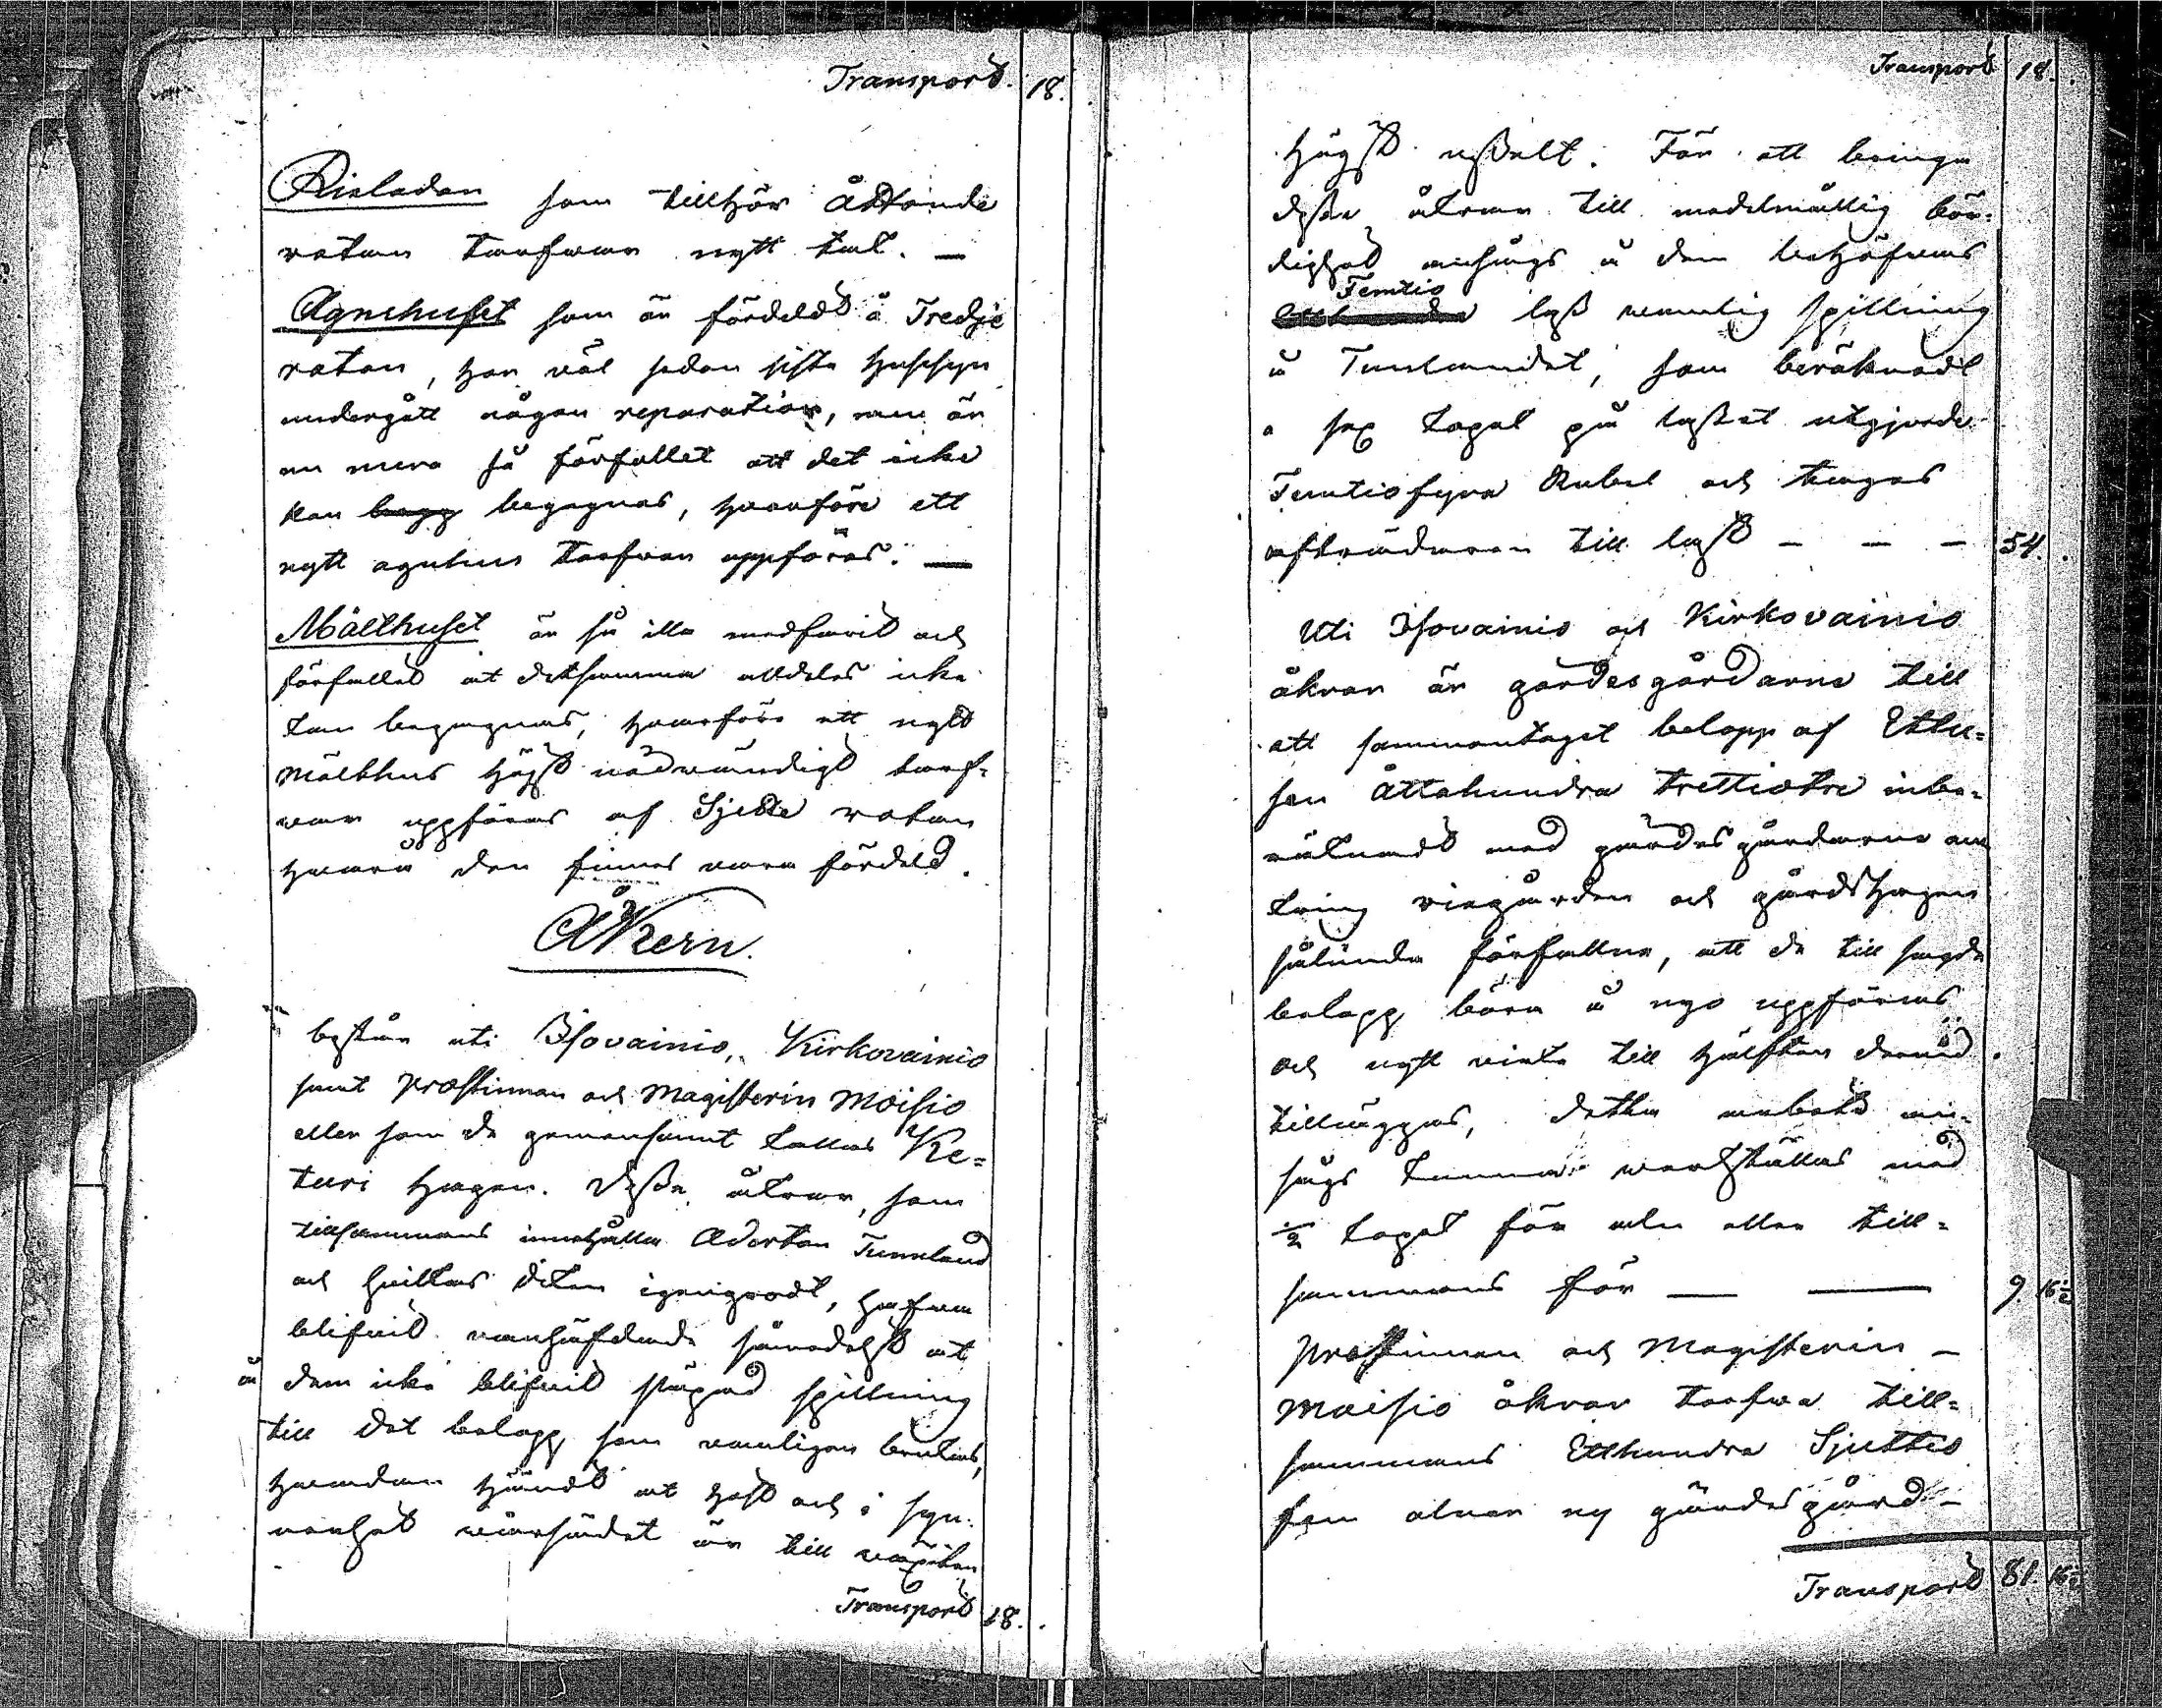 Transport. 18.
Rieladan som tillhör Åttonde
rotan tarfvar nytt tak. —
Agnehuset som är fördeldt å Tredje
rotan, har väl sedan sista Huussyn
undergått någon reparation, men är
nu mera så förfallet att det icke
kan begg begagnas, hvarföre ett
nytt agnhus tarfvar uppföras. —
Mälthuset är så illa medfarit och
förfallet at detsamma alldeles icke
kan begagnas, hvarföre ett nytt
mälthus högst nödvändigt tarf-
var uppföras af Sjette rotan
hvarå den finnes vara fördeld.
Åkern.
består uti Isovainio, Kirkovainio
samt Prostinnan och Magisterin Moisio
eller som de gemensamt kallas Ke=
turi Hagen. Desse åkrar, som
tillsammans innehålla Aderton Tunnland
och hvilkas diken igengrodt, hafva
blifvit vanhäfdade såmedelst at
å dem icke blifvit förgad spillning
till det belopp, som vanligen brukas,
hvaraf händt at höst och i syn-
nerhet vårsädet är till växten
Transport 18.
Transport 18.
Högst uselt. För att bringa
dessa åkrar till medelmåttig bör-
dighet ansågs å dem behöfvas
Femtio
lass vanlig spillning
å Tunlandet, som beräknadt
a sex kopek på lasset utgjorde
Femtiofyra Rubel och tages
afträdaren till last — — — 54.
Uti Isovainio och Kirkovainio
åkrar är gärdesgårdarne till
ett sammantaget belopp af Ettu=
sen Åttahundra trettiotre inbe-
räknadt med gärdesgårdarne om
kring riegården och gårdshagen
sålunda förfallne, att de till sagde
belopp böra å nyo uppföras
och nytt virke till hälften dervid
tilläggas, detta arbete an-
sågs kunna verkställas med
½ kopek för aln eller till=
sammans för — — 9 16½
Prostinnan och Magisterin —
Moisio åkrar tarfva till=
sammans Etthundra Sjuttio
fem alnar ny gärdesgård —
Transport 81 16½